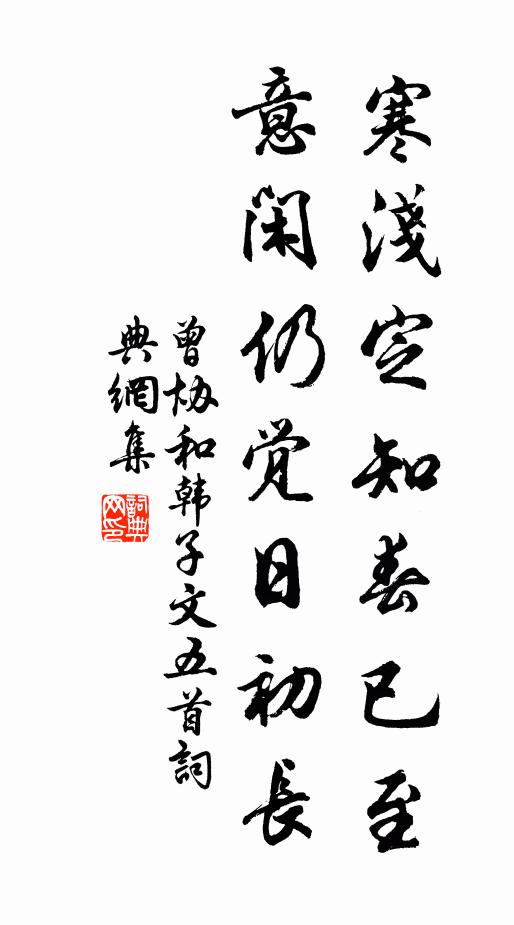 寒淺定知春已至
意闲仍觉日初長
曾协和韩子文五首詞
典網集
詞典网印